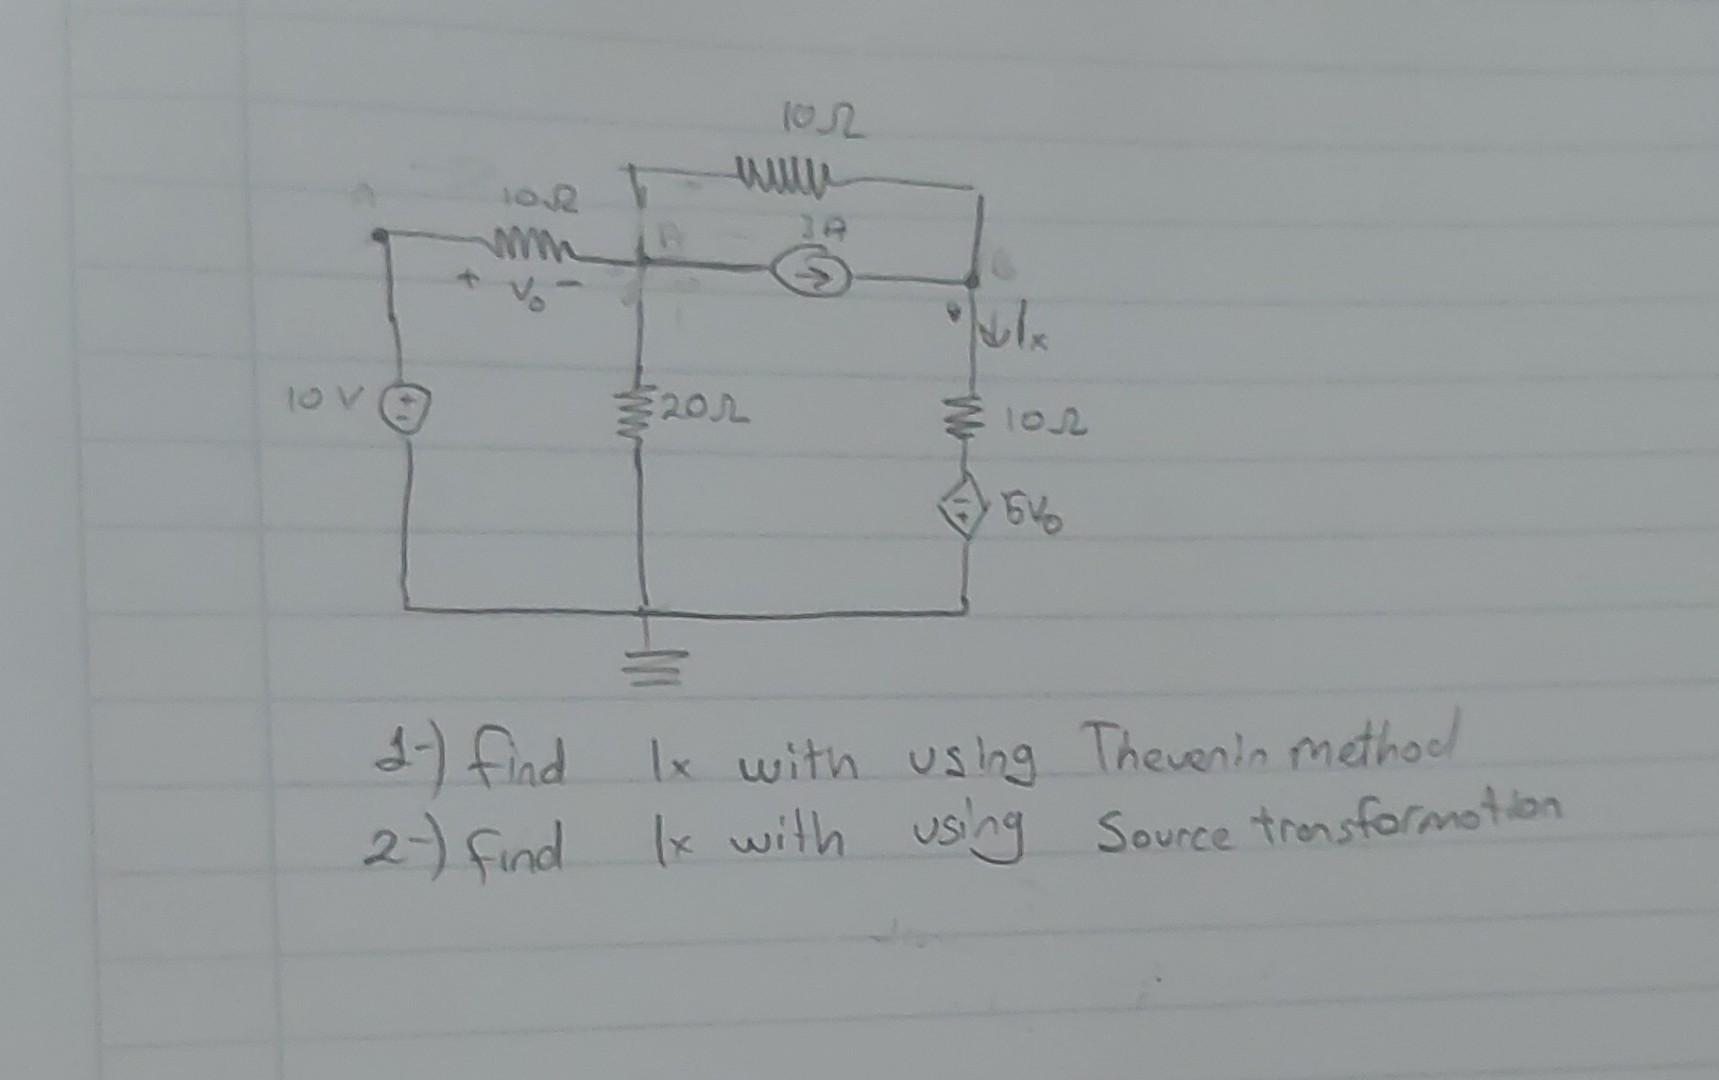 10Ω
10Ω
3A
+ Vo -
Ix
10V
20Ω
10Ω
5Vo
1-) find Ix with using Thevenin method
2-) find Ix with using Source transformation